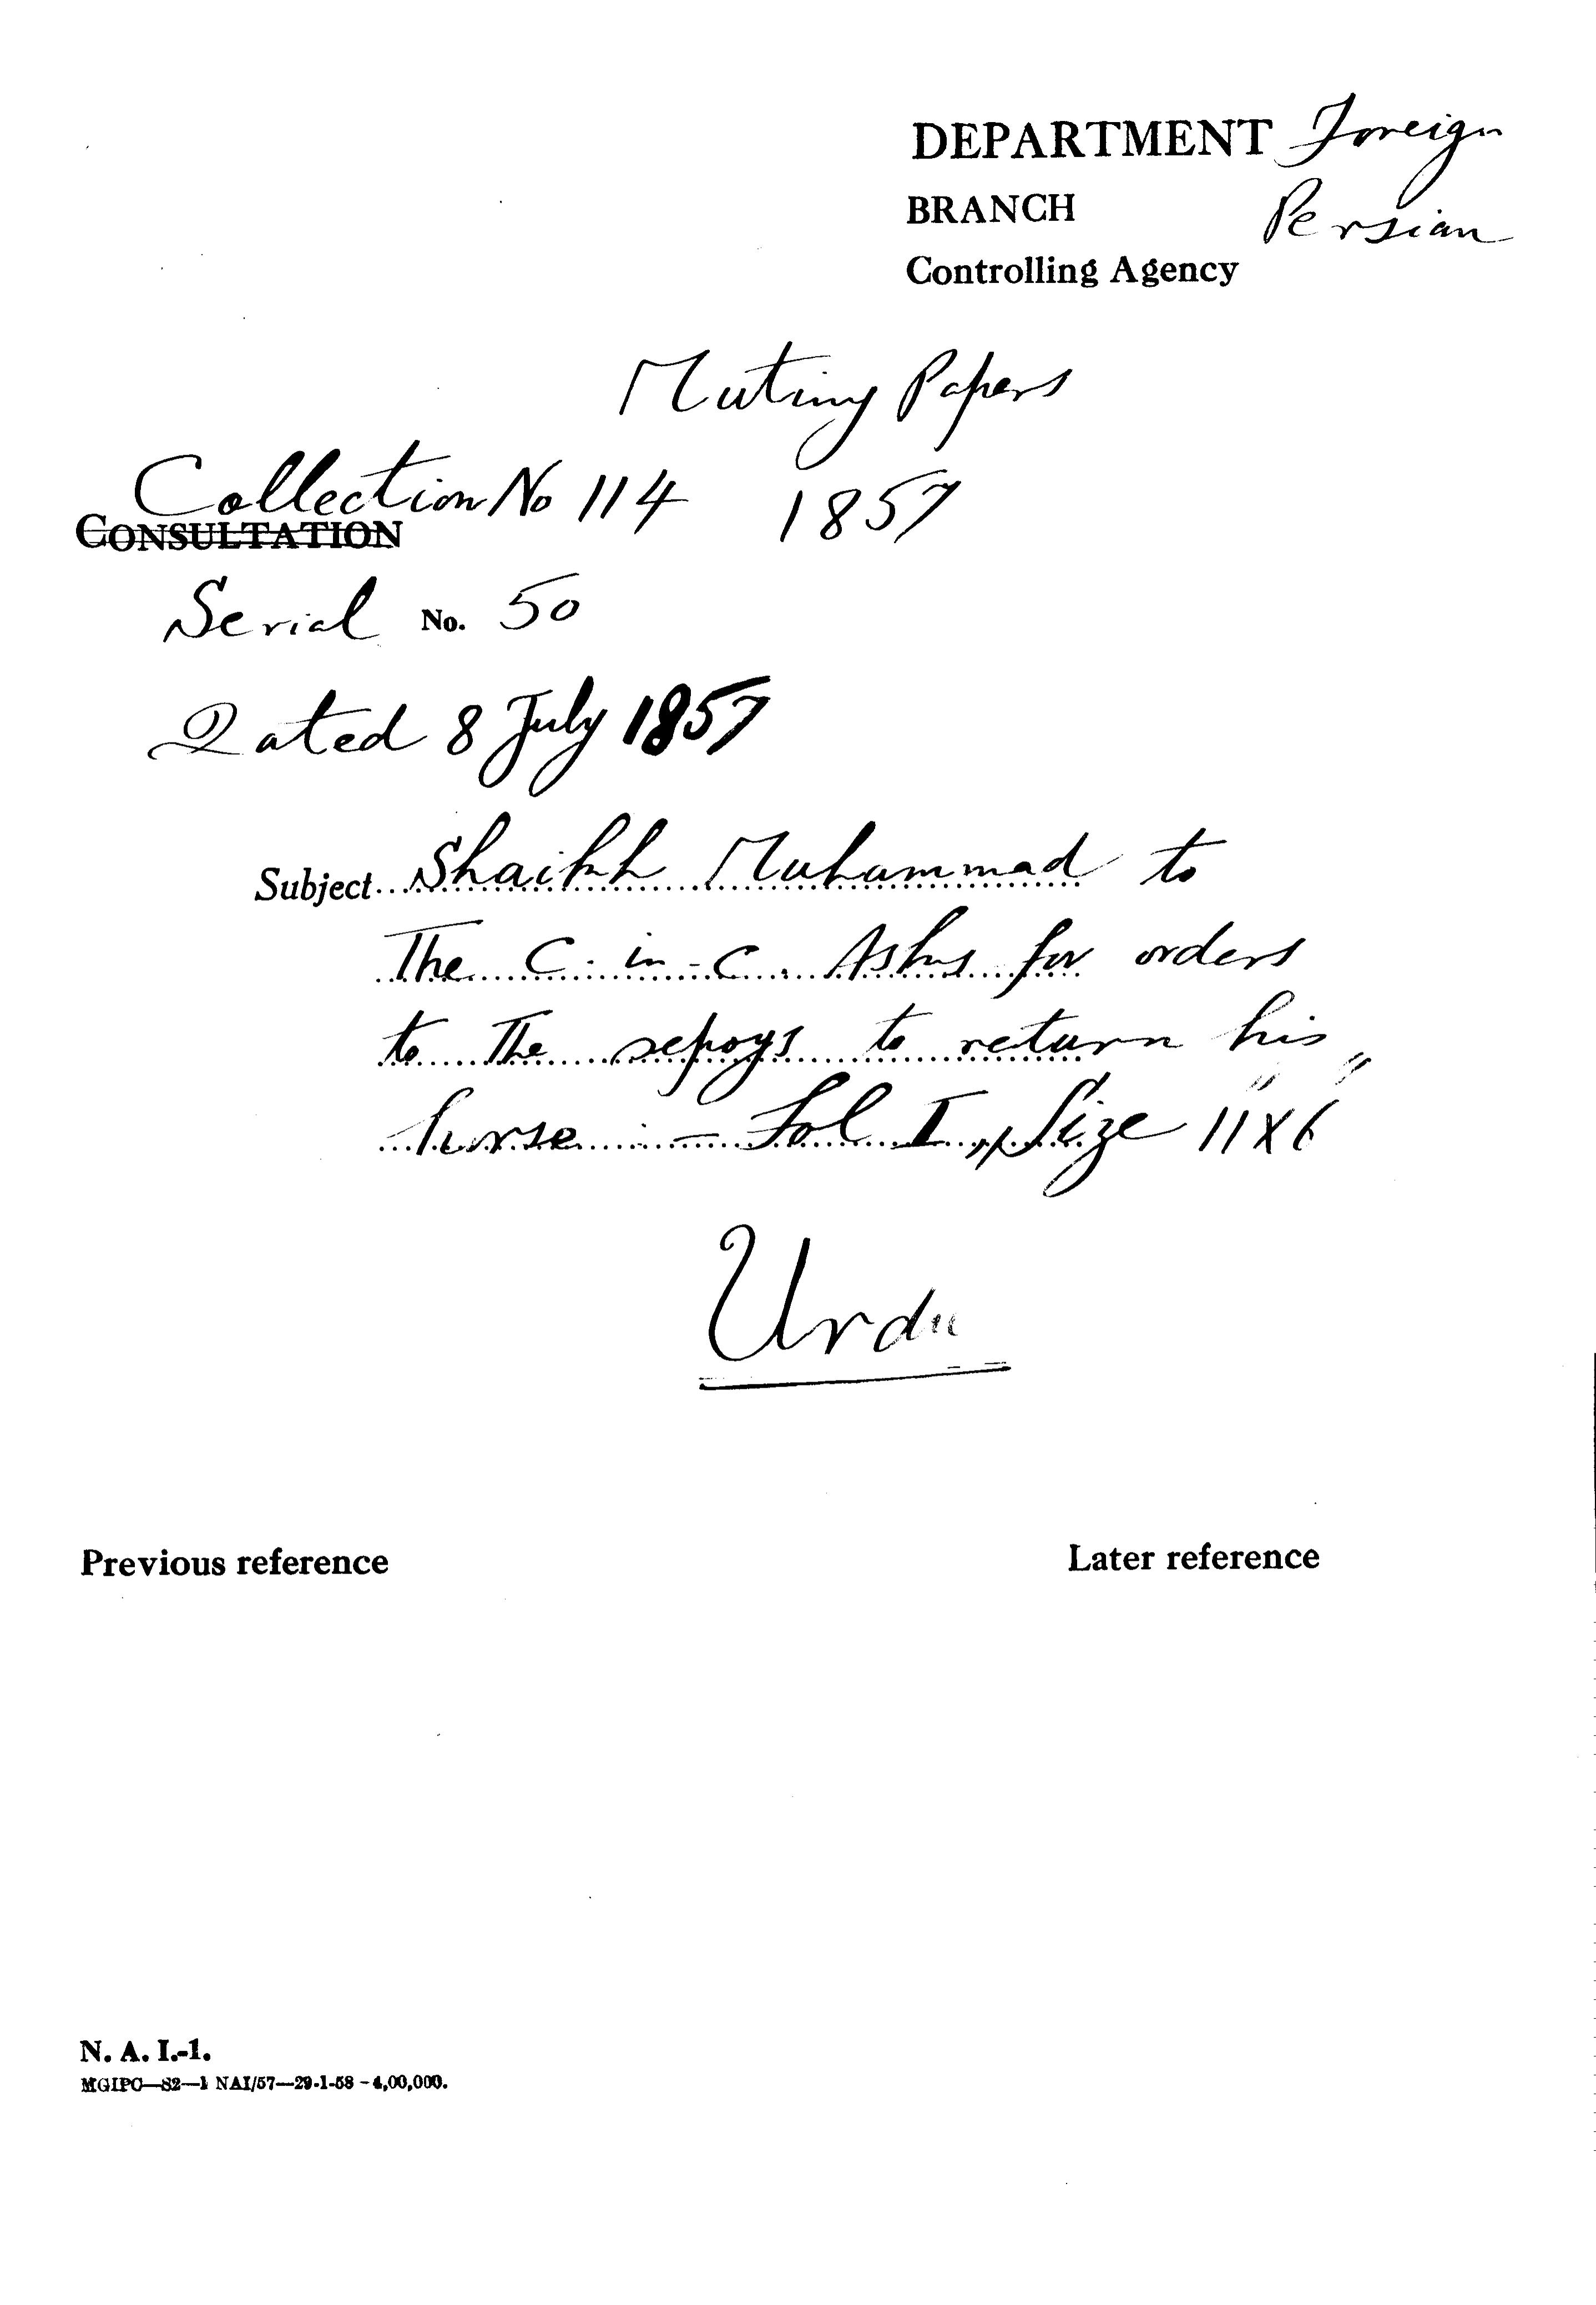 DEPARTMENT Foreign
BRANCH Persian
Controlling Agency
Mutiny Papers
Collection No 114 1857
CONSULTATION
Serial No. 50
Dated 8 July 1857
Subject Shaikh Muhammad to
The C-in-C. Asks for orders
to the sepoys to return his
Purse - Fol I, Size 11" x 6"
Urdu
Previous reference Later reference
N. A. I.-1.
MGIPC—S2—1 NAI/57—29-1-58 - 4,00,000.